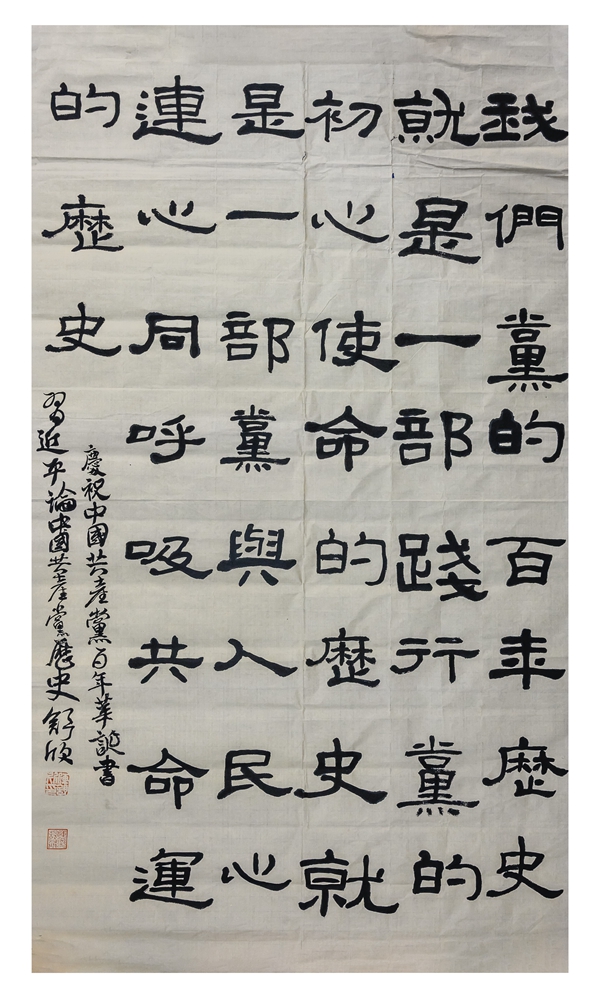 我們黨的百年歷史
就是一部踐行黨的
初心使命的歷史就
是一部黨與人民心
連心同呼吸共命運
的歷史
慶祝中國共產黨百年華誕書
習近平論中國共產黨歷史 舒欣